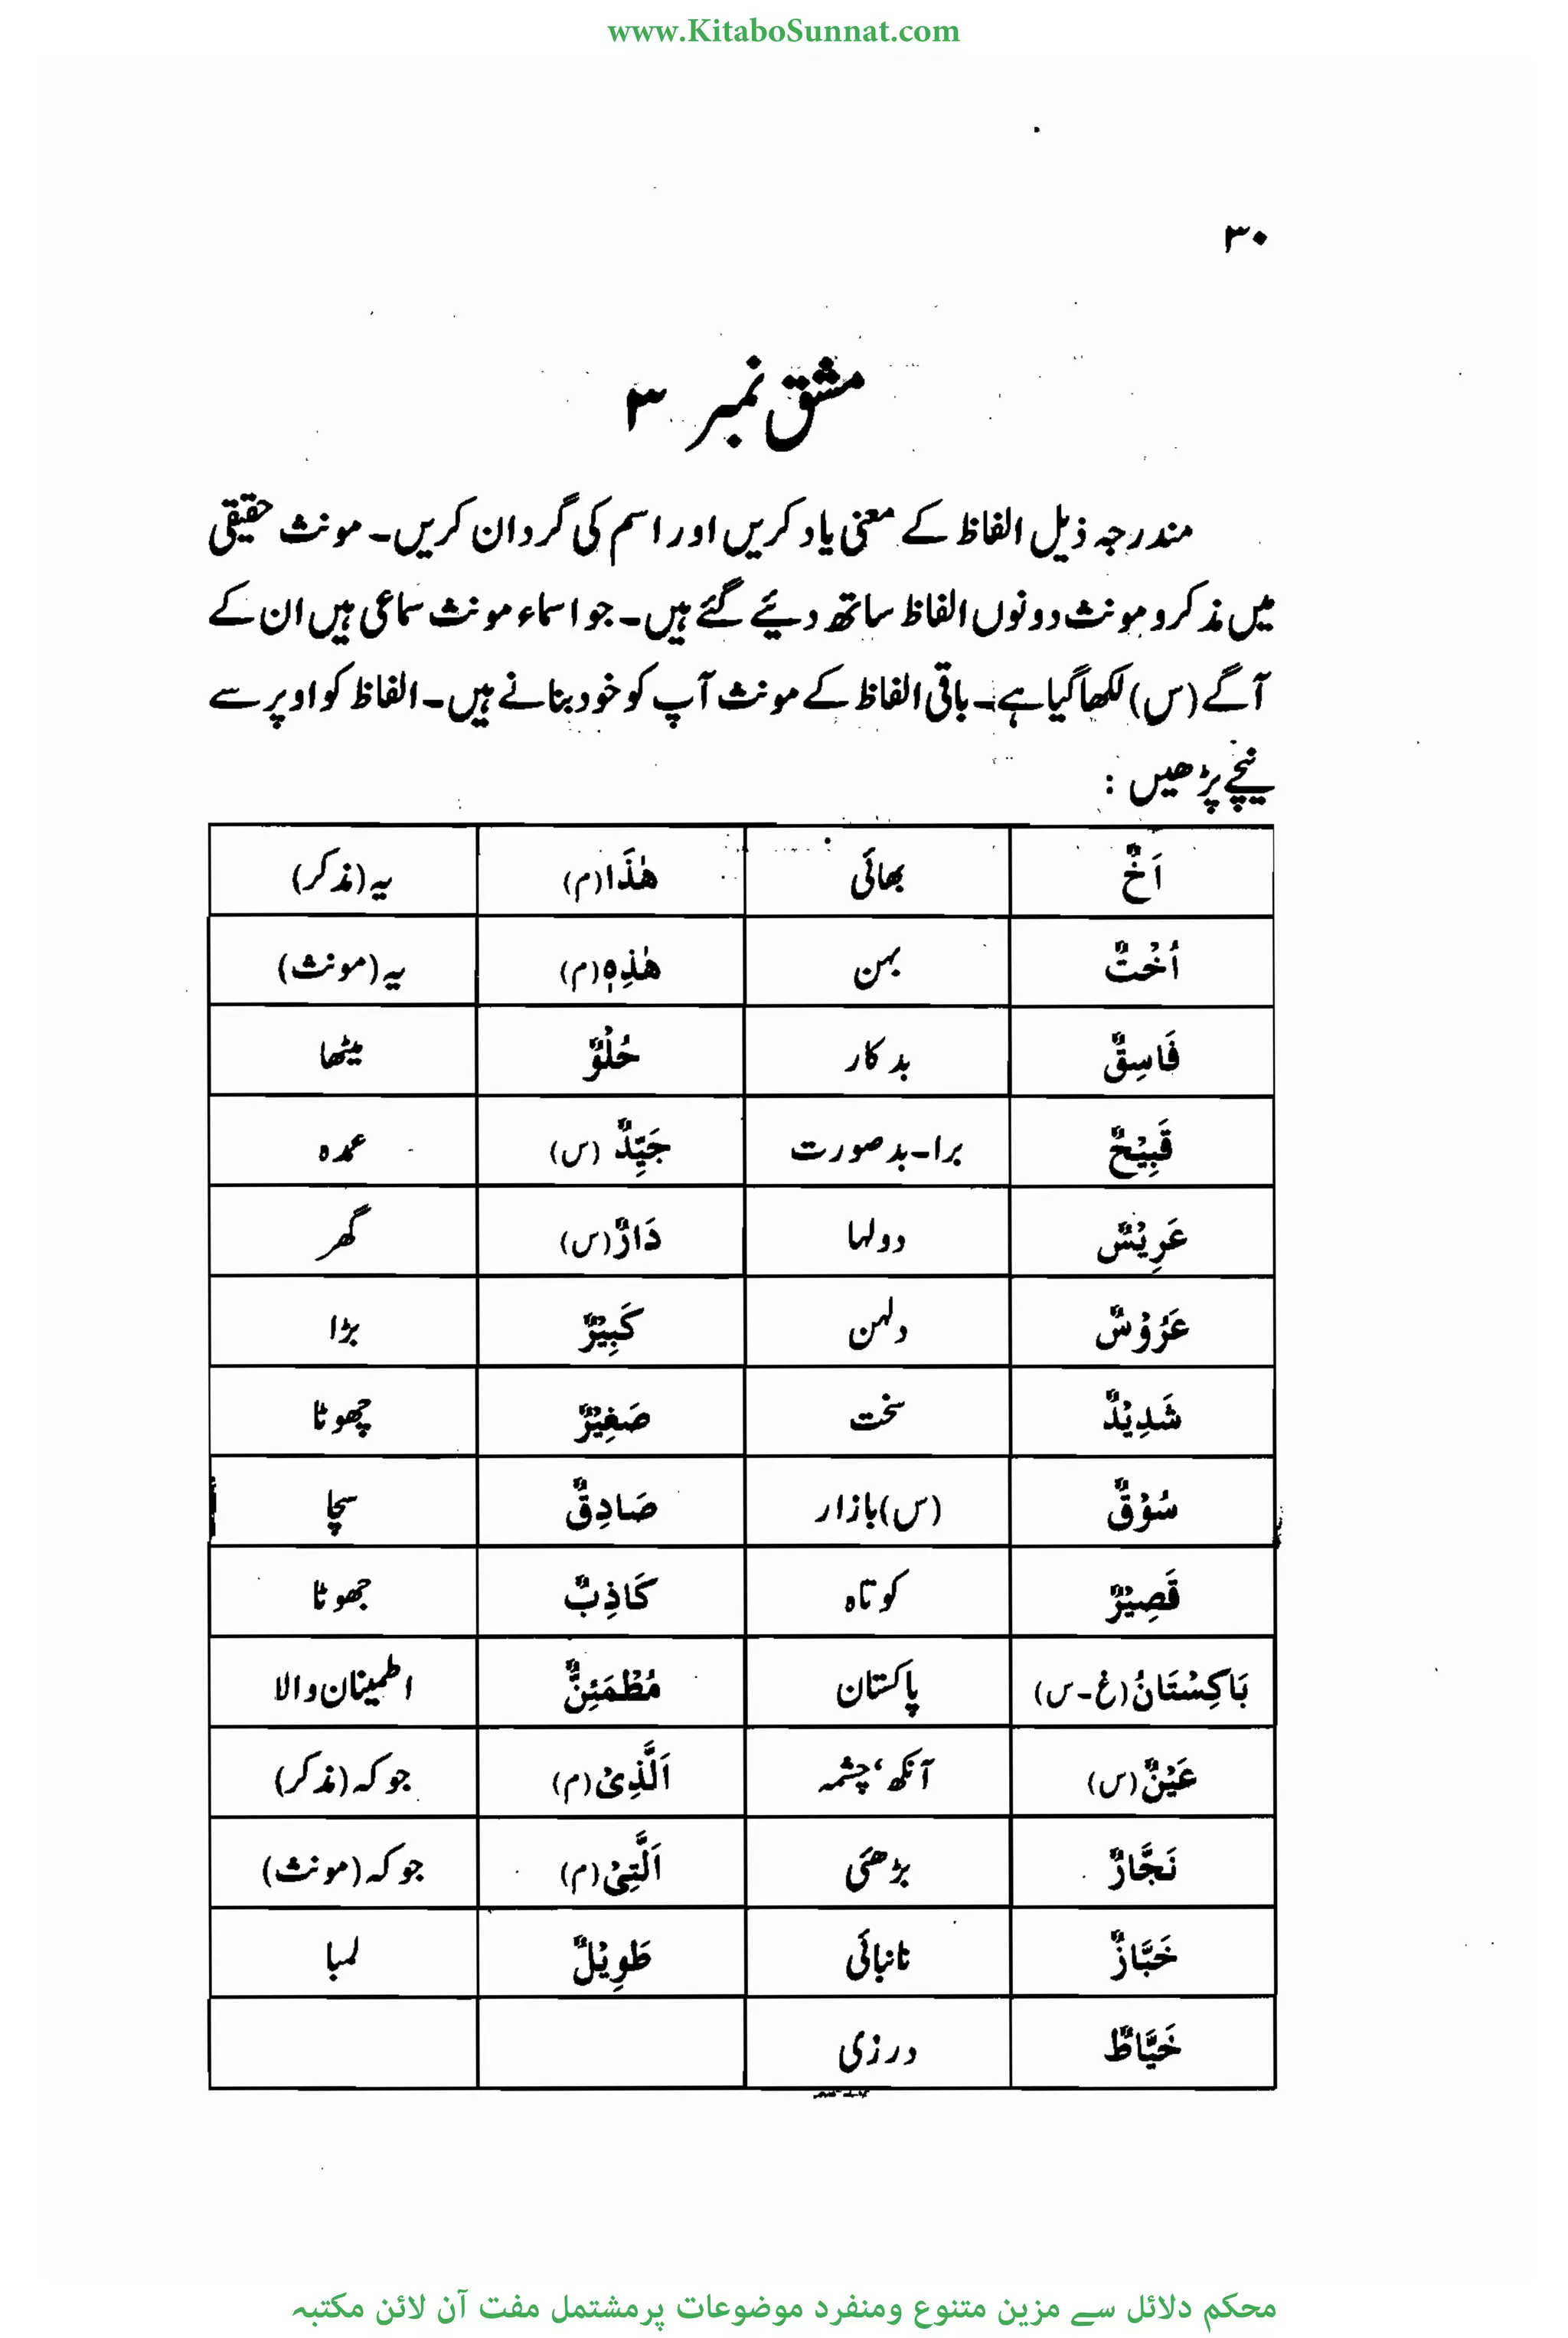 www.KitaboSunnat.com
۳۰
مشق نمبر ۳
مندرجہ ذیل الفاظ کے معنی یاد کریں اور اسم کی گردان کریں۔ مونث حقیقی
میں مذکر و مونث دونوں الفاظ ساتھ دیئے گئے ہیں۔ جو اسماء مونث سماعی ہیں ان کے
آگے (س) لکھا گیا ہے۔ باقی الفاظ کے مونث آپ کو خود بنانے ہیں۔ الفاظ کو اوپر سے
نیچے پڑھیں :
اَخٌ بھائی هٰذَا (م) یہ (مذکر)
اُخْتٌ بہن هٰذِهٖ (م) یہ (مونث)
فَاسِقٌ بدکار حُلْوٌ میٹھا
قَبِیْحٌ برا۔بدصورت جَیِّدٌ (س) عمدہ
عَرِیْسٌ دولہا دَارٌ (س) گھر
عَرُوْسٌ دلہن کَبِیْرٌ بڑا
شَدِیْدٌ سخت صَغِیْرٌ چھوٹا
سُوْقٌ (س) بازار صَادِقٌ سچا
قَصِیْرٌ کوتاہ کَاذِبٌ جھوٹا
بَاکِسْتَانُ (غ۔س) پاکستان مُطْمَئِنٌّ اطمینان والا
عَیْنٌ (س) آنکھ، چشمہ اَلَّذِیْ (م) جو کہ (مذکر)
نَجَّارٌ بڑھئی اَلَّتِیْ (م) جو کہ (مونث)
خَبَّازٌ نانبائی طَوِیْلٌ لمبا
خَیَّاطٌ درزی
محکم دلائل سے مزین متنوع ومنفرد موضوعات پر مشتمل مفت آن لائن مکتبہ